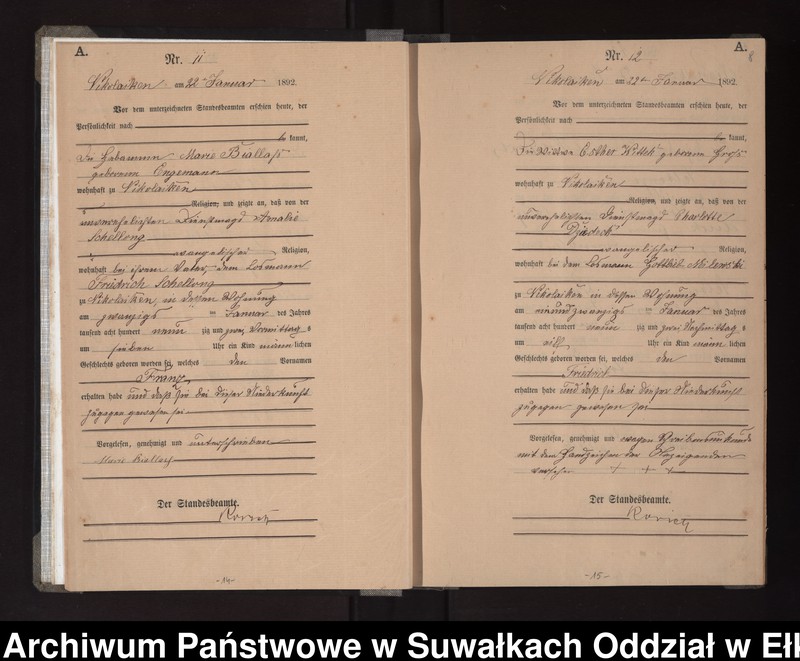 A.
Nr. 11
Nikolaiken am 22ten Januar 1892
Vor dem unterzeichneten Standesbeamten erschien heute, der
Persönlichkeit nach
be kannt,
Die Hebamme Marie Biallaß
geborene Engemann
wohnhaft zu Nikolaiken
Religion, und zeigte an, daß von der
unverehelichten Dienstmagd Amalie
Schellong
evangelischer Religion,
wohnhaft bei ihrem Vater, dem Losmann
Friedrich Schellong
zu Nikolaiken, in dessen Wohnung
am zwanzigs ten Januar des Jahres
tausend acht hundert neun zig und zwei Vormittag s
um sieben Uhr ein Kind männ lichen
Geschlechts geboren worden sei, welches den Vornamen
Franz
erhalten habe und daß sie bei dieser Niederkunft
zugegen gewesen sei
Vorgelesen, genehmigt und unterschrieben
Marie Biallaß
Der Standesbeamte.
-14-
A.
8
Nr. 12
Nikolaiken am 22ten Januar 1892
Vor dem unterzeichneten Standesbeamten erschien heute, der
Persönlichkeit nach
be kannt,
Die Wittwe Esther Wittek geborene Groß
wohnhaft zu Nikolaiken
Religion, und zeigte an, daß von der
unverehelichten Dienstmagd Charlotte
evangelischer Religion,
wohnhaft bei dem Losmann Gottlieb Milewski
zu Nikolaiken in dessen Wohnung
am neunzwanzigs ten Januar des Jahres
tausend acht hundert neun zig und zwei Vormittag s
um elf Uhr ein Kind männ lichen
Geschlechts geboren worden sei, welches den Vornamen
Friedrich
erhalten habe und daß sie bei dieser Niederkunft
zugegen gewesen sei
Vorgelesen, genehmigt und wegen Schreibensunkunde
mit dem Handzeichen der Anzeigenden
versehen + + +
Der Standesbeamte.
-15-
Archiwum Państwowe w Suwałkach Oddział w Ełk